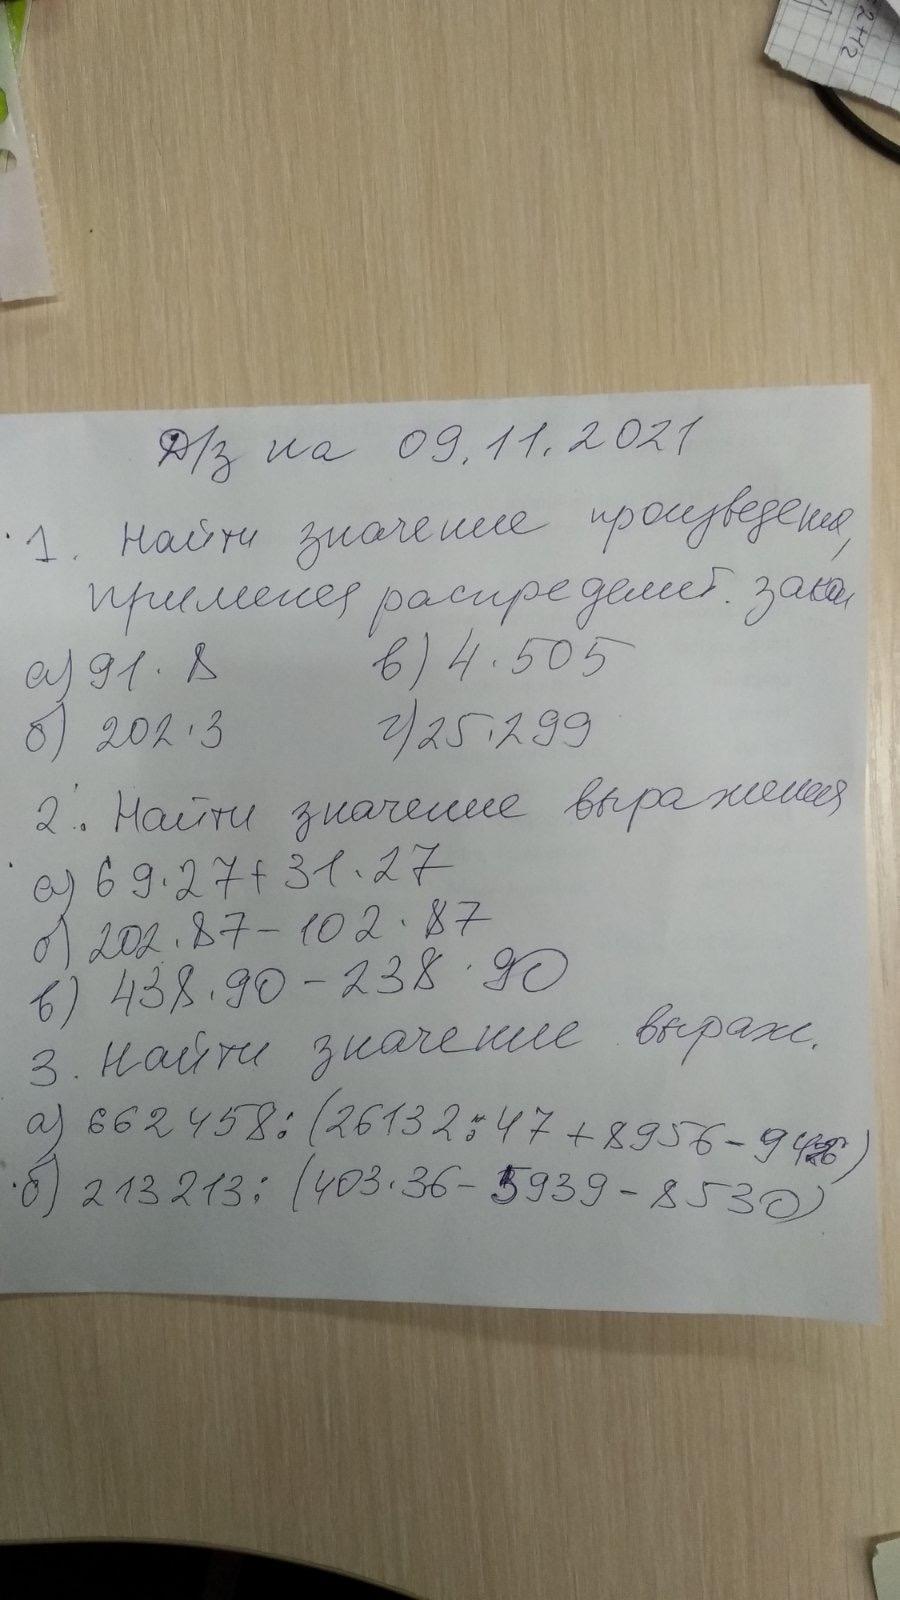 2+H2
Д/з на 09.11.2021
1. Найти значение произведения,
применяя распределит. закон
а) 91·8 в) 4·505
б) 202·3 г) 25·299
2. Найти значение выражения
а) 69·27+31·27
б) 202·87-102·87
в) 438·90-238·90
3. Найти значение выраж.
а) 662458:(26132:47+8956-
б) 213213:(403·36-5939-8530)